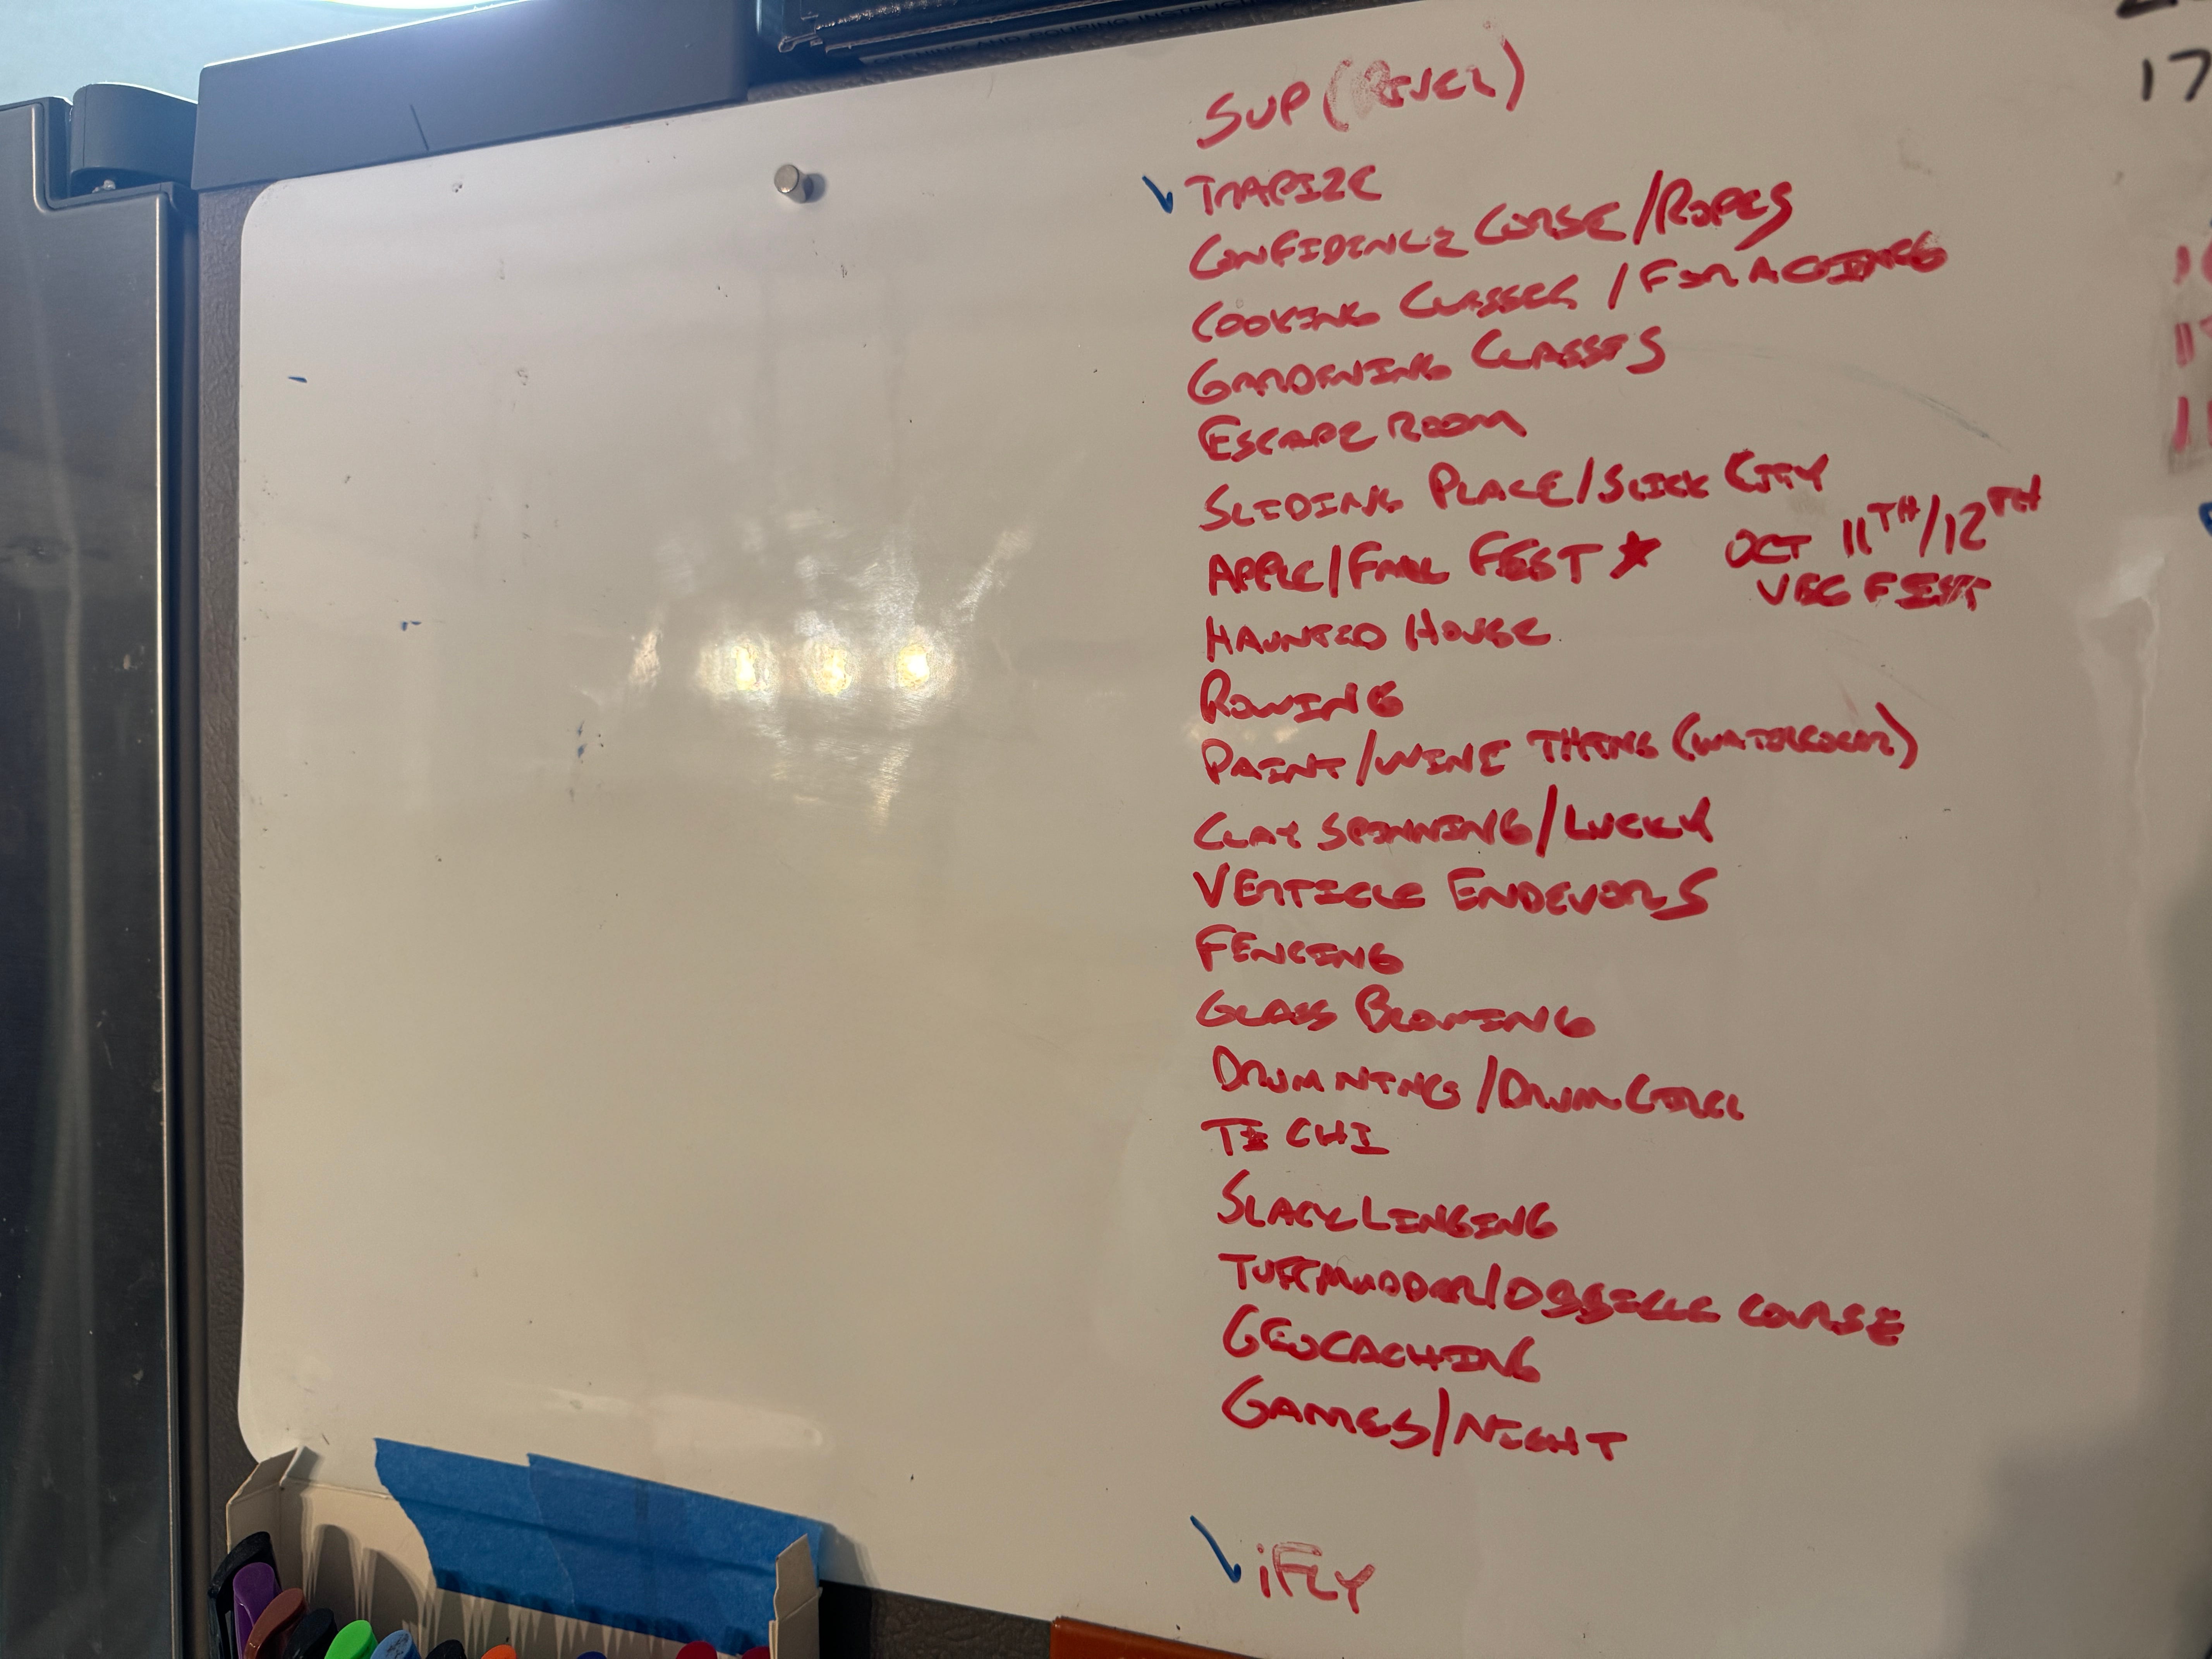 CLEANING AND POURING INSTRUCTI
17
SUP (RIVER)
TRAPIZE
CONFIDENCE CORSE/ROPES
COOKING CLASSES / FORAGING
GARDENING CLASSES
ESCAPE ROOM
SLIDING PLACE/SLICK CITY
APPLE/FALL FEST ★ OCT 11TH/12TH
VEG FEST
HAUNTED HOUSE
ROWING
PAINT/WINE THING (WATERCOLOR)
CLAY SPINNING/LUCKY
VERTICLE ENDEVORS
FENCING
GLASS BLOWING
DRUMNING/DRUM CIRCL
TI CHI
SLACKLINGING
TUFFMUDDER/OBSSICLE COURSE
GEOCACHING
GAMES/NIGHT
iFLY